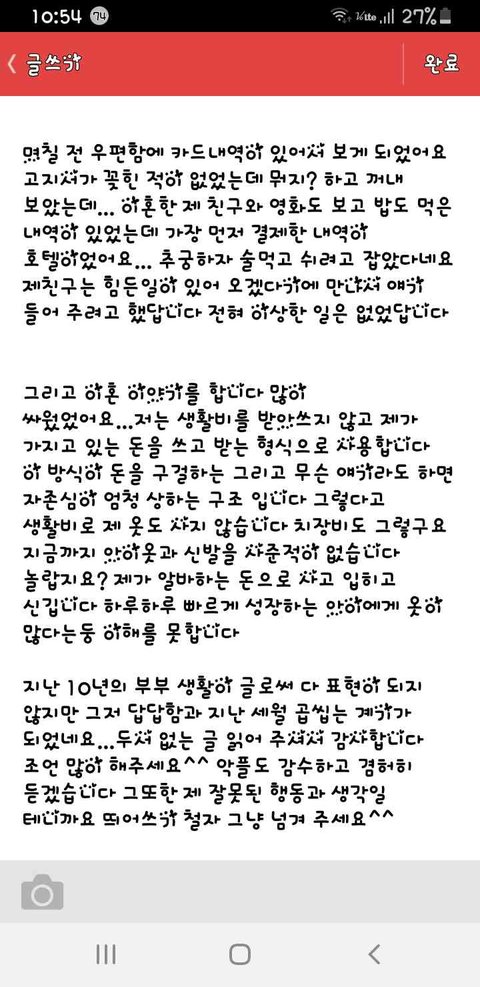 10:54 74 LTE 27%
글쓰기 완료
몇칠 전 우편함에 카드내역이 있어서 보게 되었어요
고지서가 꽂힌 적이 없었는데 뭐지? 하고 꺼내
보았는데... 이혼한 제 친구와 영화도 보고 밥도 먹은
내역이 있었는데 가장 먼저 결제한 내역이
호텔이었어요... 추궁하자 술먹고 쉬려고 잡았다네요
제친구는 힘든일이 있어 오겠다기에 만나서 얘기
들어 주려고 했답니다 전혀 이상한 일은 없었답니다
그리고 이혼 이야기를 합니다 많이
싸웠었어요...저는 생활비를 받아쓰지 않고 제가
가지고 있는 돈을 쓰고 받는 형식으로 사용합니다
이 방식이 돈을 구걸하는 그리고 무슨 얘기라도 하면
자존심이 엄청 상하는 구조 입니다 그렇다고
생활비로 제 옷도 사지 않습니다 치장비도 그렇구요
지금까지 아이옷과 신발을 사준적이 없습니다
놀랍지요? 제가 알바하는 돈으로 사고 입히고
신깁니다 하루하루 빠르게 성장하는 아이에게 옷이
많다는둥 이해를 못합니다
지난 10년의 부부 생활이 글로써 다 표현이 되지
않지만 그저 답답함과 지난 세월 곱씹는 계기가
되었네요...두서 없는 글 읽어 주셔서 감사합니다
조언 많이 해주세요^^ 악플도 감수하고 겸허히
듣겠습니다 그또한 제 잘못된 행동과 생각일
테니까요 띄어쓰기 철자 그냥 넘겨 주세요^^